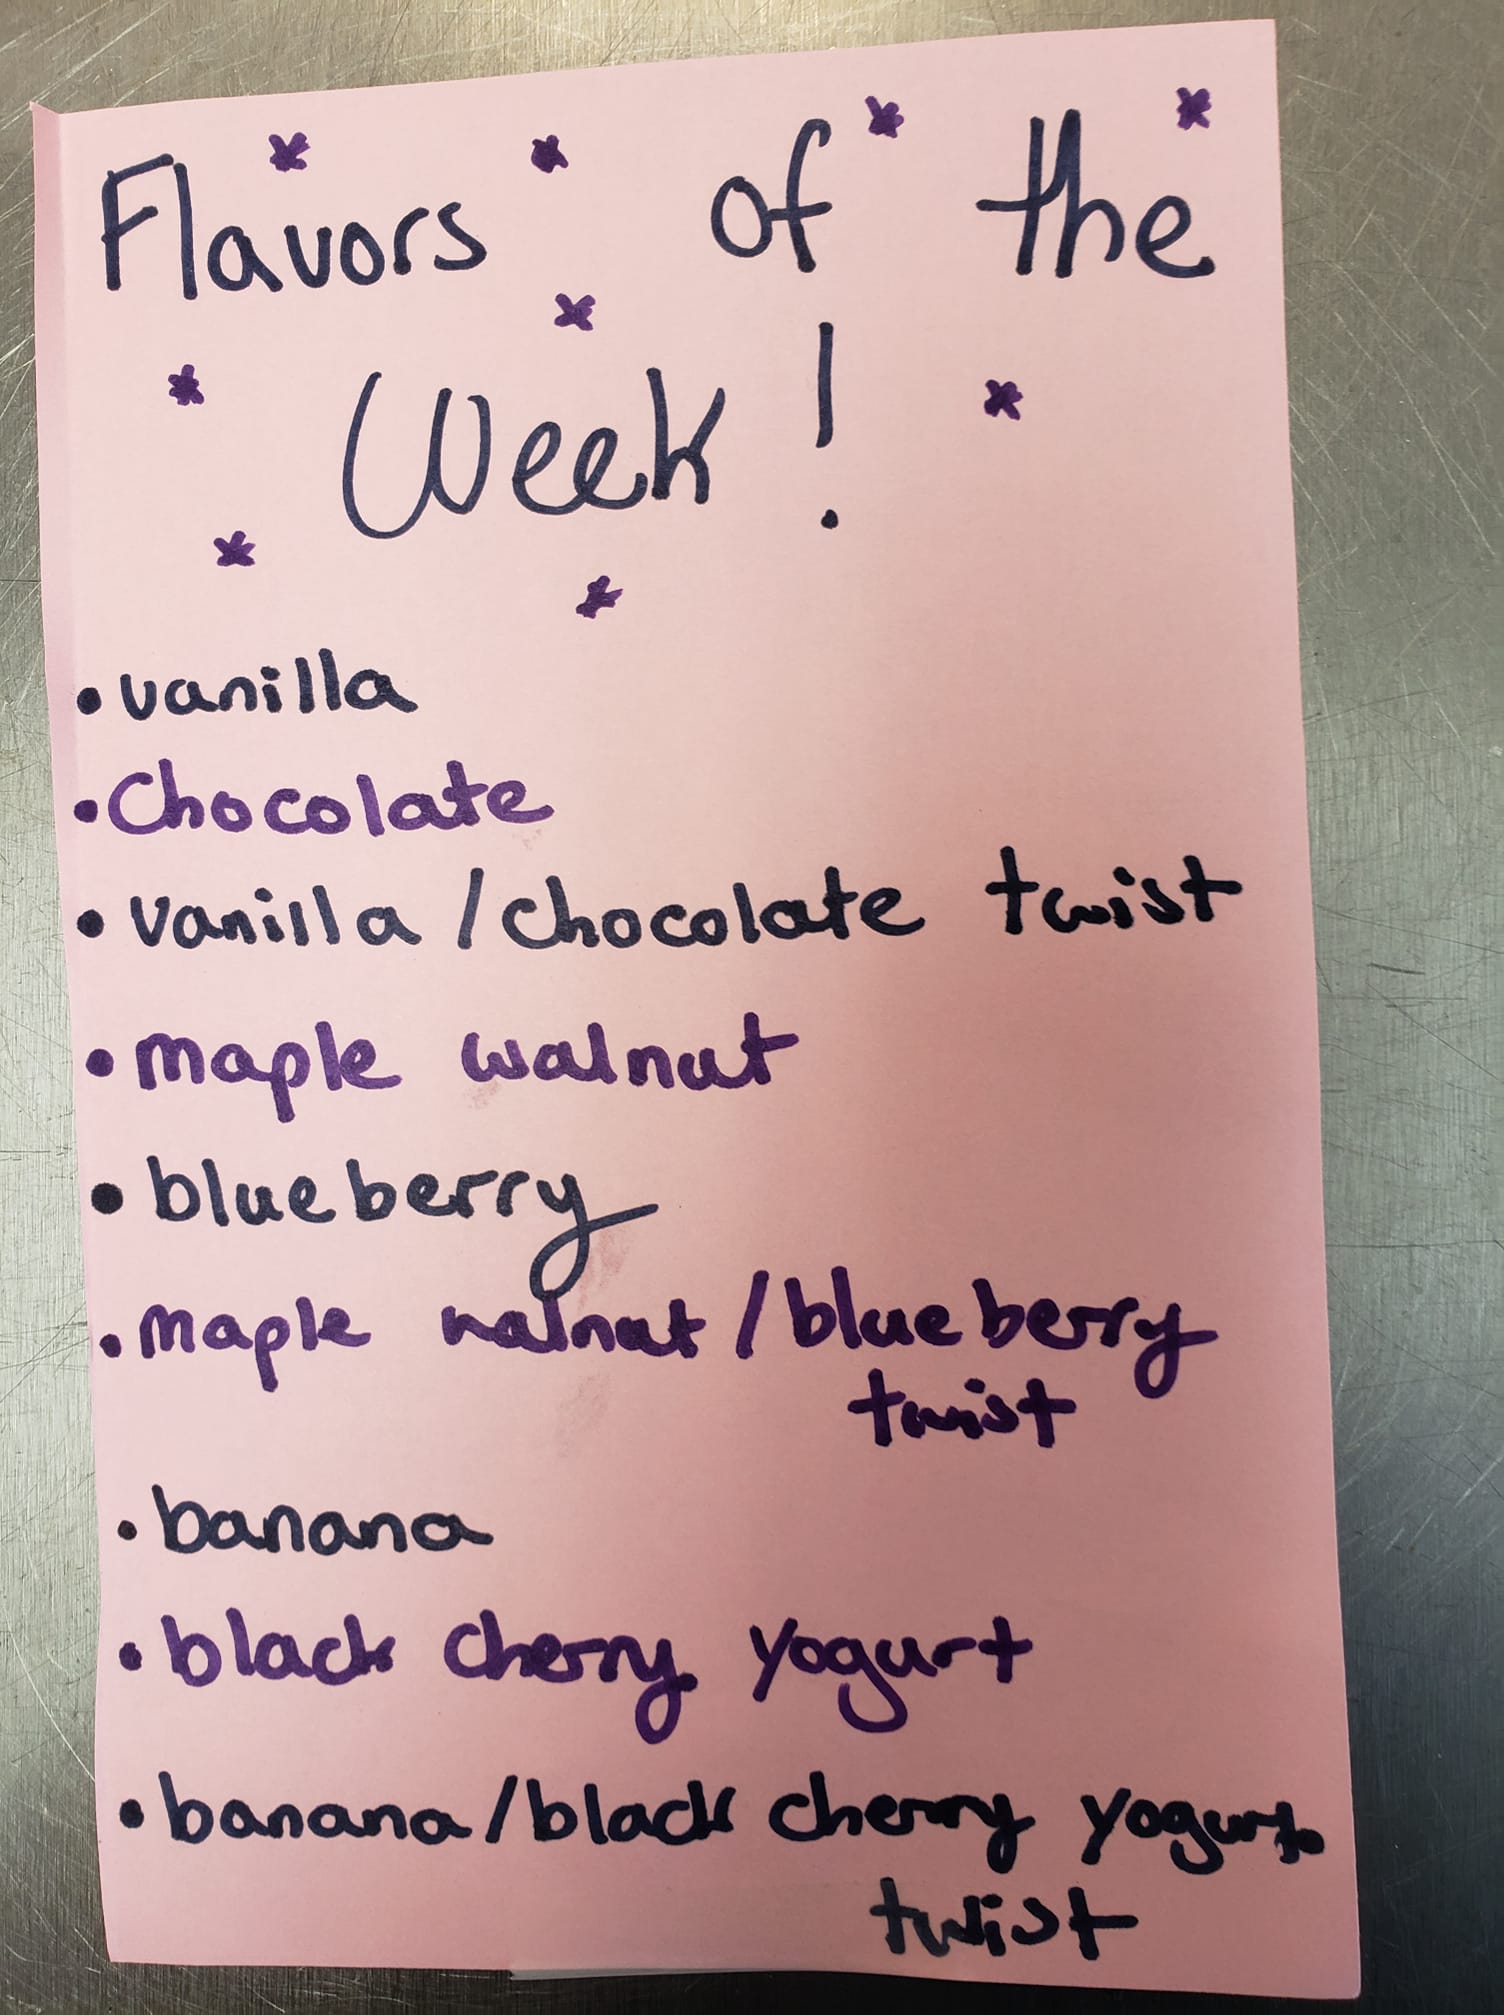 Flavors of the
Week!
• vanilla
• Chocolate
• vanilla / chocolate twist
• maple walnut
• blueberry
• maple walnut / blueberry
twist
• banana
• black cherry yogurt
• banana / black cherry yogurt
twist